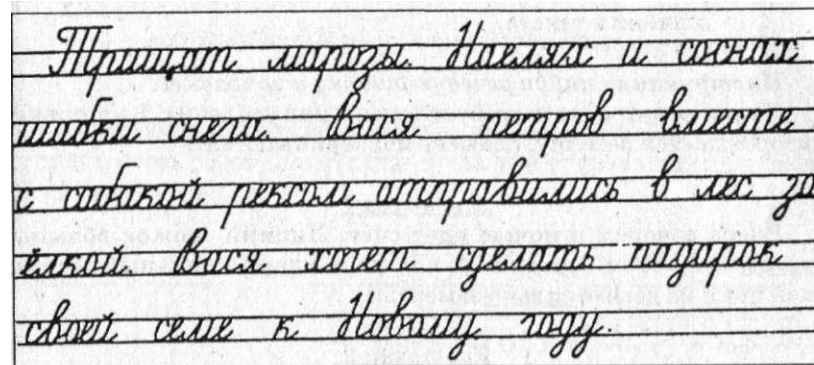 Трищат марозы. Наелях и соснах
шабки снега. вася петров вместе
с сабакой рексом атправились в лес за
ёлкой. вася хочет сделать падарок
своей семе к Новаму году.